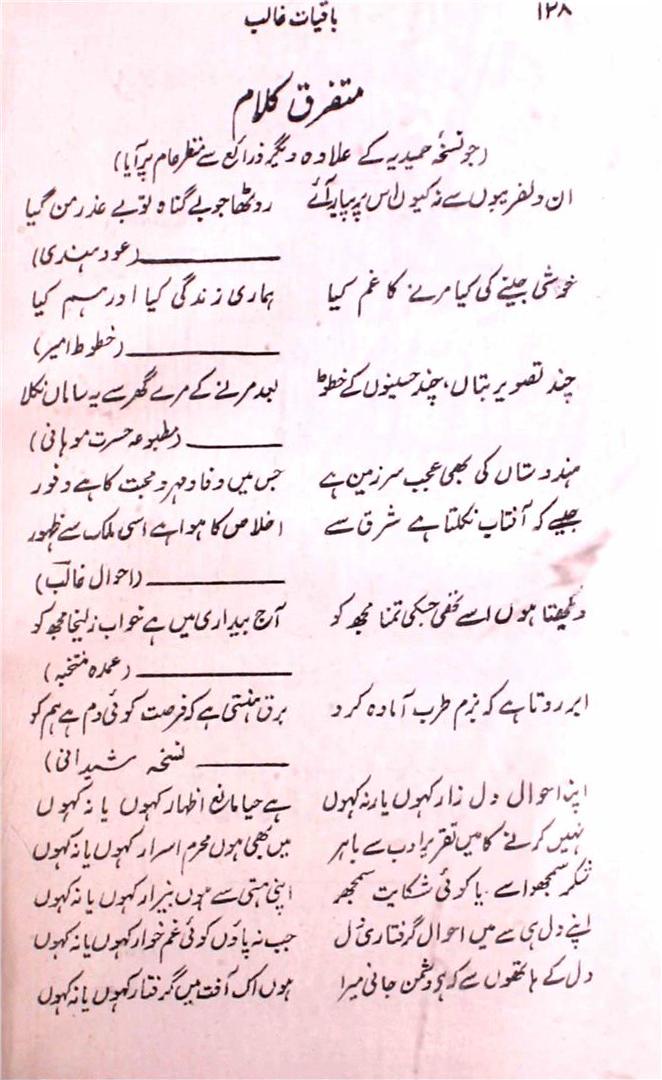 ۱۲۸ باقیات غالب
متفرق کلام
(جو نسخۂ حمیدیہ کے علاوہ دیگر ذرائع سے منظر عام پر آیا)
ان دلفریبیوں سے نہ کیوں اس پر پیار آئے روٹھا جو بے گناہ تو بے عذر من گیا
(عود ہندی)
خوشی جینے کی کیا مرنے کا غم کیا ہماری زندگی کیا اور ہم کیا
(خطوط امیر)
چند تصویر بتاں، چند حسینوں کے خطوط بعد مرنے کے مرے گھر سے یہ ساماں نکلا
(مطبوعہ حسرت موہانی)
ہندوستاں کی بھی عجب سرزمین ہے جس میں وفا و مہر و محبت کا ہے وفور
جیسے کہ آفتاب نکلتا ہے شرق سے اخلاص کا ہوا ہے اسی ملک سے ظہور
(احوال غالب)
دیکھتا ہوں اسے تھی جس کی تمنا مجھ کو آج بیداری میں ہے خواب زلیخا مجھ کو
(عمدہ منتخبہ)
ابر روتا ہے کہ بزم طرب آمادہ کرو برق ہنستی ہے کہ فرصت کوئی دم ہے ہم کو
نسخہ شیرانی)
اپنا احوال دل زار کہوں یا نہ کہوں ہے حیا مانع اظہار کہوں یا نہ کہوں
نہیں کرنے کا میں تقریر ادب سے باہر میں بھی ہوں محرم اسرار کہوں یا نہ کہوں
شکر سمجھو اسے یا کوئی شکایت سمجھو اپنی ہستی سے ہوں بیزار کہوں یا نہ کہوں
اپنے دل ہی سے میں احوال گرفتاری دل جب نہ پاؤں کوئی غم خوار کہوں یا نہ کہوں
دل کے ہاتھوں سے کہ ہے دشمن جانی میرا ہوں اک آفت میں گرفتار کہوں یا نہ کہوں